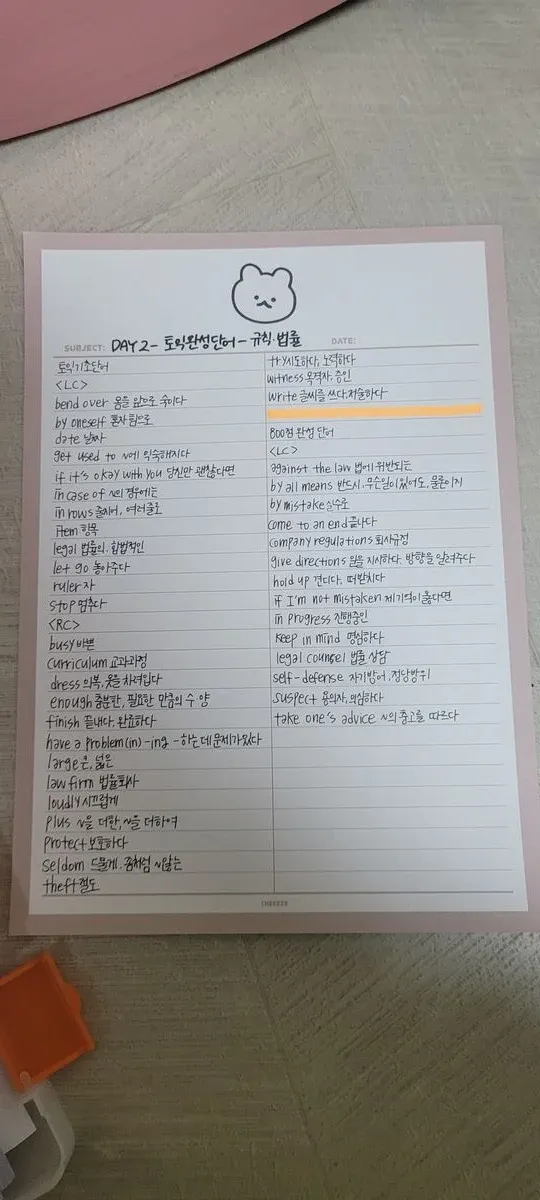 SUBJECT: DAY 2 - 토익완성단어 - 규칙·법률 DATE:
토익기초단어
<LC>
bend over 몸을 앞으로 숙이다
by oneself 혼자 힘으로
date 날짜
get used to ~에 익숙해지다
if it's okay with you 당신만 괜찮다면
in case of ~의 경우에는
in rows 줄지어, 여러줄로
item 항목
legal 법률의, 합법적인
let go 놓아주다
ruler 자
stop 멈추다
<RC>
busy 바쁜
curriculum 교과과정
dress 의복, 옷을 차려입다
enough 충분한, 필요한 만큼의 수 양
finish 끝내다, 완료하다
have a problem (in) -ing -하는데 문제가 있다
large 큰, 넓은
law firm 법률회사
loudly 시끄럽게
plus ~을 더한, ~을 더하여
protect 보호하다
seldom 드물게, 좀처럼 ~않는
theft 절도
try 시도하다, 노력하다
witness 목격자, 증인
write 글씨를 쓰다, 저술하다
800점 완성 단어
<LC>
against the law 법에 위반되는
by all means 반드시, 무슨일이 있어도, 물론이지
by mistake 실수로
come to an end 끝나다
company regulations 회사규정
give directions 일을 지시하다, 방향을 알려주다
hold up 견디다, 떠받치다
if I'm not mistaken 제 기억이 옳다면
in progress 진행중인
keep in mind 명심하다
legal counsel 법률 상담
self-defense 자기방어, 정당방위
suspect 용의자, 의심하다
take one's advice ~의 충고를 따르다